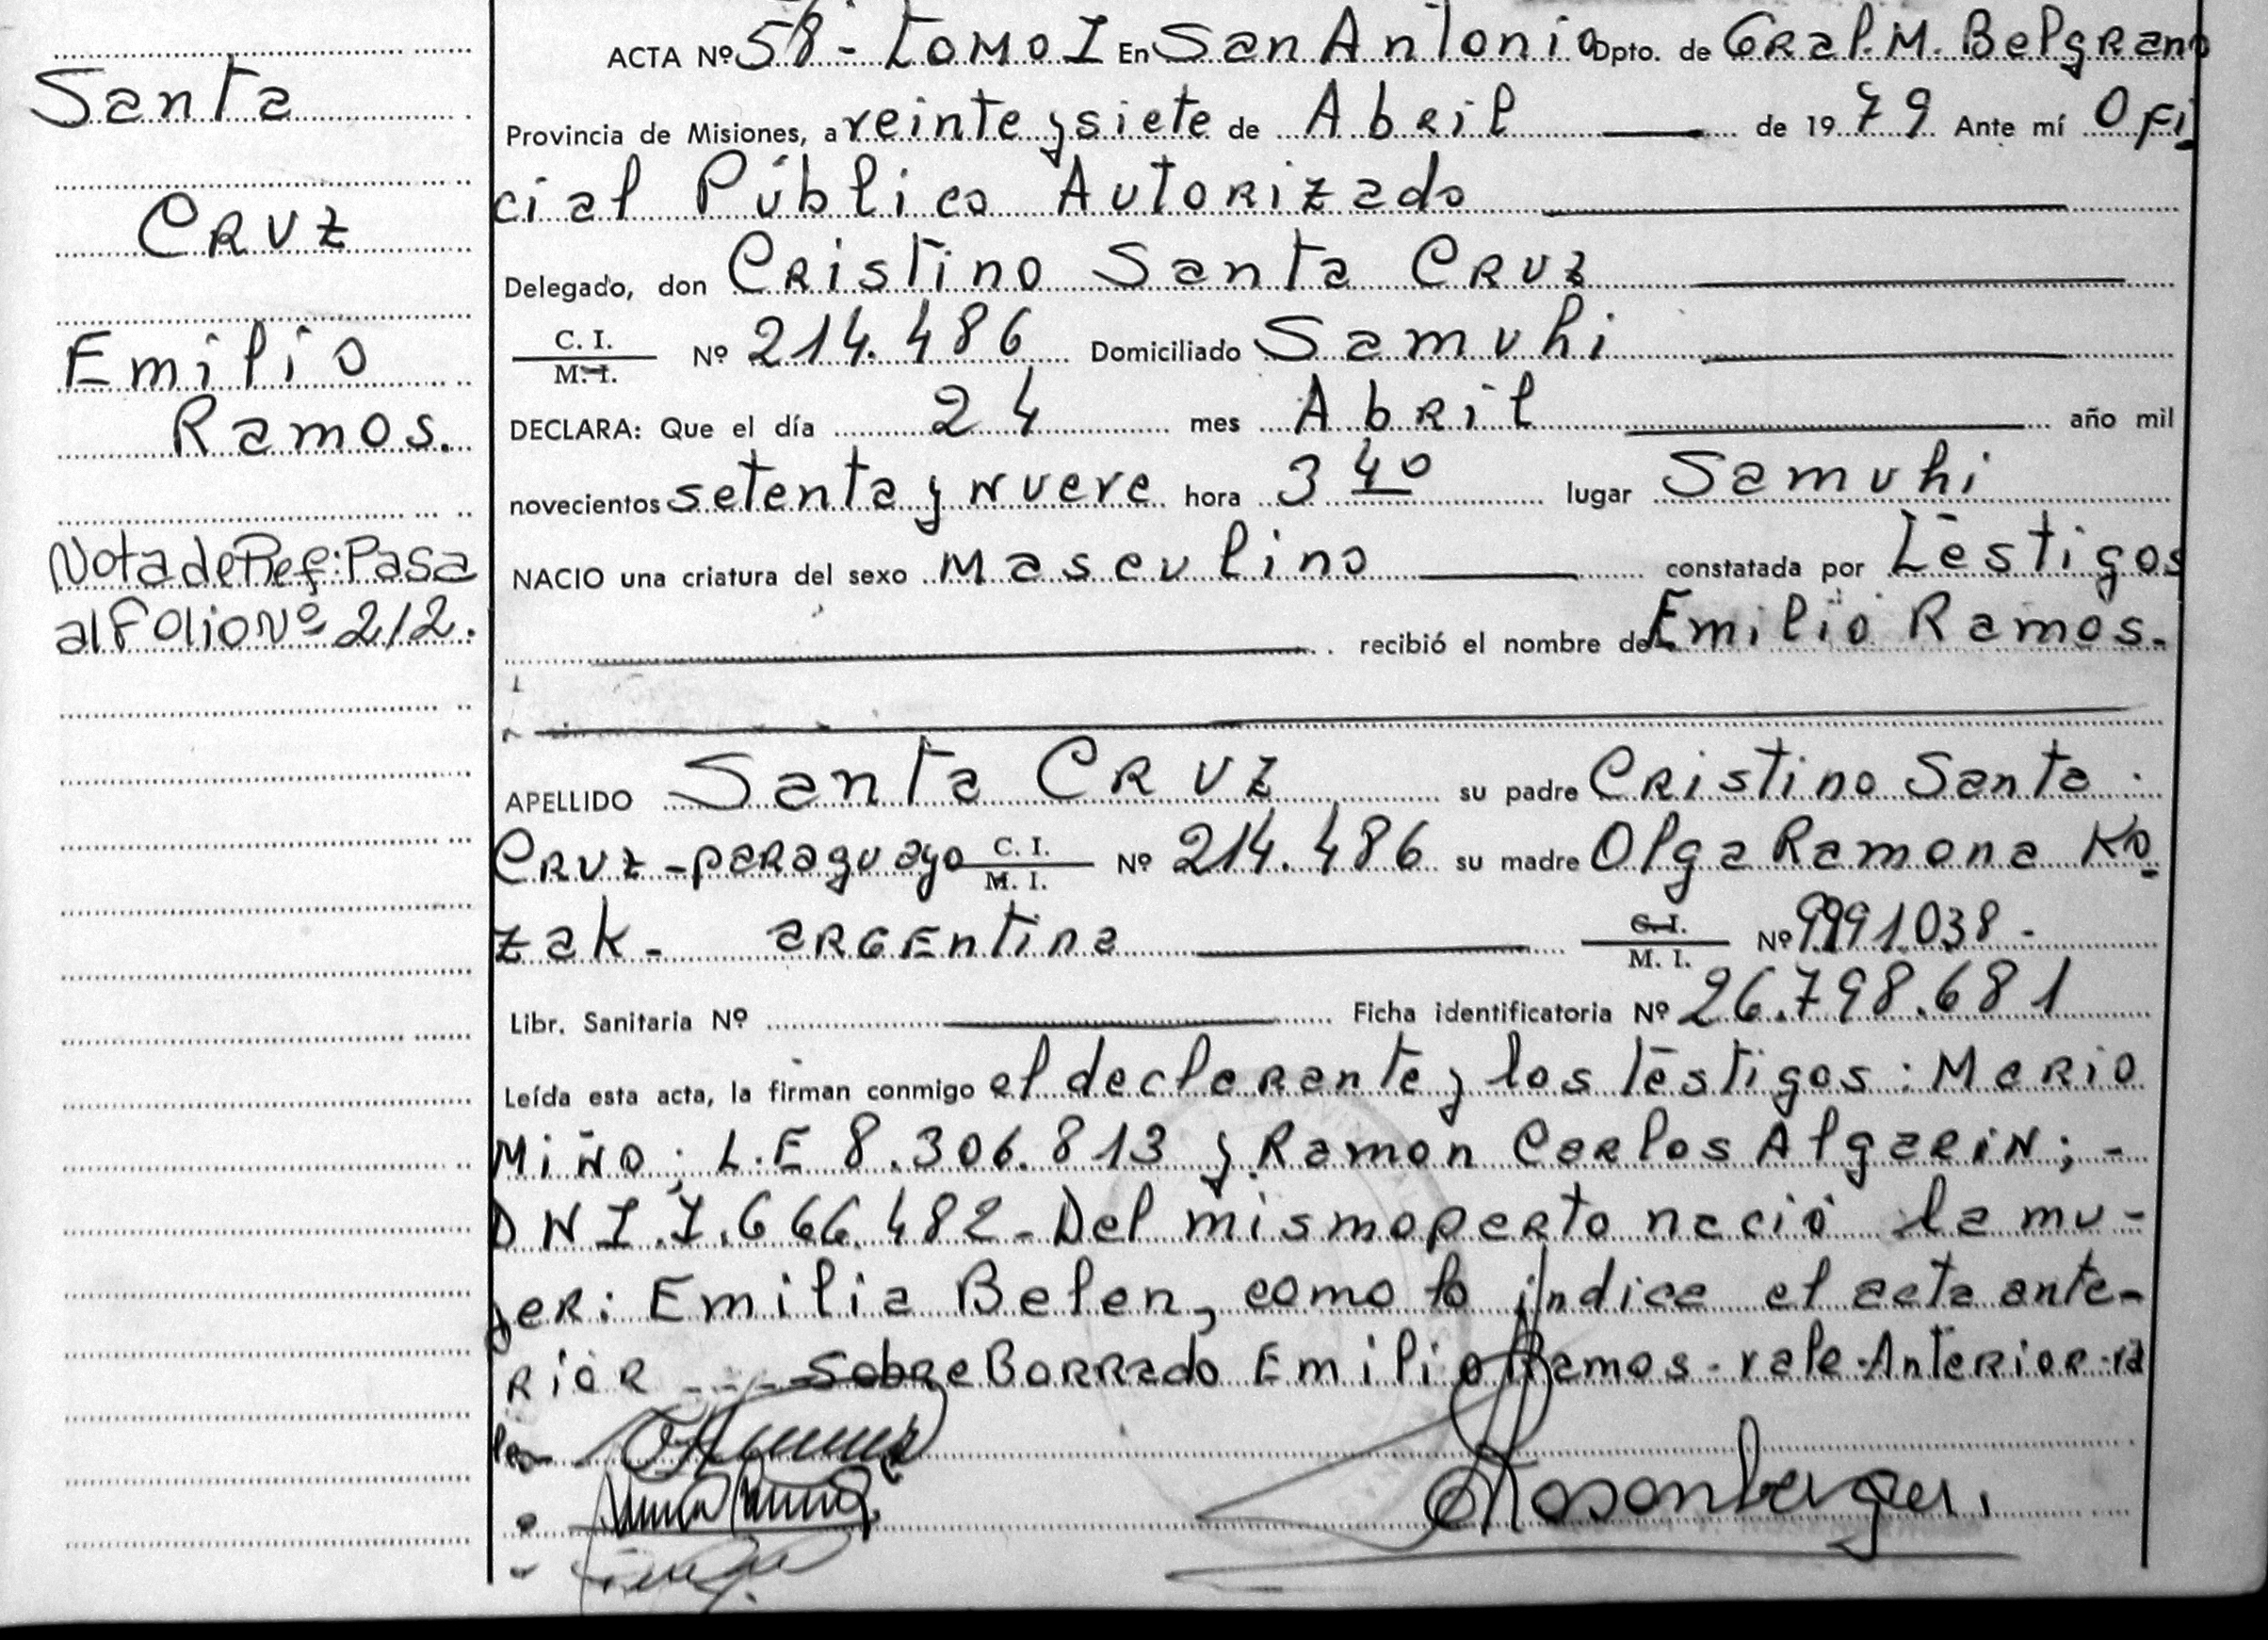 Santa
Cruz
Emilio
Ramos.
Nota de Ref: Pasa
al Folio Nº 212.
ACTA Nº 58 - Tomo I En San Antonio Dpto. de Gral. M. Belgrano
Provincia de Misiones, a veinte y siete de Abril de 1979 Ante mí Ofi
cial Público Autorizado
Delegado, don Cristino Santa Cruz
C. I.
M. I. Nº 214.486 Domiciliado Samuhi
DECLARA: Que el día 24 mes Abril año mil
novecientos setenta y nueve hora 3 40 lugar Samuhi
NACIO una criatura del sexo masculino constatada por Testigos
recibió el nombre de Emilio Ramos.
APELLIDO Santa Cruz su padre Cristino Santa
Cruz - paraguayo C. I.
M. I. Nº 214.486 su madre Olga Ramona Ko
zak - argentina C. I.
M. I. Nº 9991038 -
Libr. Sanitaria Nº Ficha identificatoria Nº 26.798.681
Leída esta acta, la firman conmigo el declarante y los testigos: Mario
Miño; L.E 8.306.813 y Ramon Carlos Algarin; -
DNI. 7.666.482 - Del mismo parto nació la mu-
jer: Emilia Belen, como lo indica el acta ante-
rior --- Sobre Borrado Emilio Ramos - vale - Anterior - va
le -
Rosenberger.